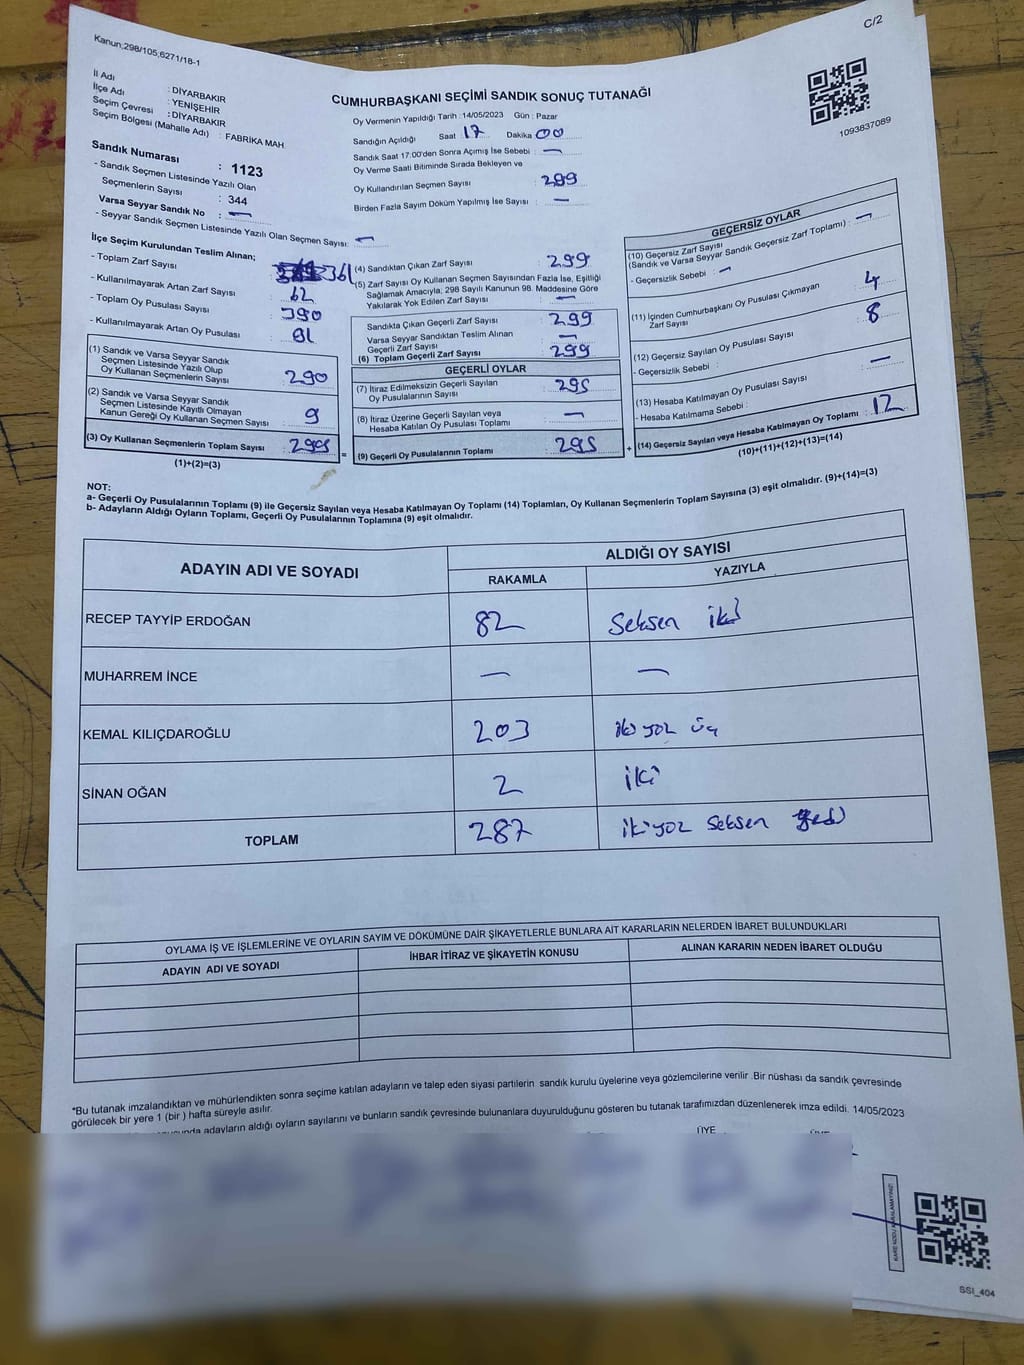 Kanun;298/105;6271/18-1
C/2
İl Adı : DİYARBAKIR
İlçe Adı : YENİŞEHİR
Seçim Çevresi : DİYARBAKIR
Seçim Bölgesi (Mahalle Adı) : FABRİKA MAH.
CUMHURBAŞKANI SEÇİMİ SANDIK SONUÇ TUTANAĞI
1093837089
Oy Vermenin Yapıldığı Tarih :14/05/2023 Gün : Pazar
Sandığın Açıldığı Saat 17 Dakika 00
Sandık Saat 17:00'den Sonra Açımış İse Sebebi : —
Oy Verme Saati Bitiminde Sırada Bekleyen ve
Oy Kullandırılan Seçmen Sayısı : 299
Birden Fazla Sayım Döküm Yapılmış İse Sayısı : —
Sandık Numarası : 1123
- Sandık Seçmen Listesinde Yazılı Olan
Seçmenlerin Sayısı : 344
Varsa Seyyar Sandık No : —
- Seyyar Sandık Seçmen Listesinde Yazılı Olan Seçmen Sayısı: —
İlçe Seçim Kurulundan Teslim Alınan;
- Toplam Zarf Sayısı : 361
- Kullanılmayarak Artan Zarf Sayısı : 62
- Toplam Oy Pusulası Sayısı : 390
- Kullanılmayarak Artan Oy Pusulası : 91
(1) Sandık ve Varsa Seyyar Sandık
Seçmen Listesinde Yazılı Olup
Oy Kullanan Seçmenlerin Sayısı : 290
(2) Sandık ve Varsa Seyyar Sandık
Seçmen Listesinde Kayıtlı Olmayan
Kanun Gereği Oy Kullanan Seçmen Sayısı : 9
(3) Oy Kullanan Seçmenlerin Toplam Sayısı :
(1)+(2)=(3)
(4) Sandıktan Çıkan Zarf Sayısı : 299
(5) Zarf Sayısı Oy Kullanan Seçmen Sayısından Fazla İse, Eşitliği
Sağlamak Amacıyla, 298 Sayılı Kanunun 98. Maddesine Göre
Yakılarak Yok Edilen Zarf Sayısı : —
Sandıkta Çıkan Geçerli Zarf Sayısı : 299
Varsa Seyyar Sandıktan Teslim Alınan
Geçerli Zarf Sayısı : —
(6) Toplam Geçerli Zarf Sayısı : 299
GEÇERLİ OYLAR
(7) İtiraz Edilmeksizin Geçerli Sayılan
Oy Pusulalarının Sayısı : 295
(8) İtiraz Üzerine Geçerli Sayılan veya
Hesaba Katılan Oy Pusulası Toplamı : —
= (9) Geçerli Oy Pusulalarının Toplamı : 295 +
GEÇERSİZ OYLAR
(10) Geçersiz Zarf Sayısı
(Sandık ve Varsa Seyyar Sandık Geçersiz Zarf Toplamı) : —
- Geçersiz Sebebi : —
(11) İçinden Cumhurbaşkanı Oy Pusulası Çıkmayan
Zarf Sayısı : 4
(12) Geçersiz Sayılan Oy Pusulası Sayısı : 8
- Geçersizlik Sebebi :
(13) Hesaba Katılmayan Oy Pusulası Sayısı : —
- Hesaba Katılmama Sebebi :
(14) Geçersiz Sayılan veya Hesaba Katılmayan Oy Toplamı : 12
(10)+(11)+(12)+(13)=(14)
NOT:
a- Geçerli Oy Pusulalarının Toplamı (9) ile Geçersiz Sayılan veya Hesaba Katılmayan Oy Toplamı (14) Toplamları, Oy Kullanan Seçmenlerin Toplam Sayısına (3) eşit olmalıdır. (9)+(14)=(3)
b- Adayların Aldığı Oyların Toplamı, Geçerli Oy Pusulalarının Toplamına (9) eşit olmalıdır.
ADAYIN ADI VE SOYADI
ALDIĞI OY SAYISI
RAKAMLA YAZIYLA
RECEP TAYYİP ERDOĞAN 82 seksen iki
MUHARREM İNCE — —
KEMAL KILIÇDAROĞLU 203 iki yüz üç
SİNAN OĞAN 2 iki
TOPLAM 287 iki yüz seksen yedi
OYLAMA İŞ VE İŞLEMLERİNE VE OYLARIN SAYIM VE DÖKÜMÜNE DAİR ŞİKAYETLERLE BUNLARA AİT KARARLARIN NELERDEN İBARET BULUNDUKLARI
ADAYIN ADI VE SOYADI İHBAR İTİRAZ VE ŞİKAYETİN KONUSU ALINAN KARARIN NEDEN İBARET OLDUĞU
*Bu tutanak imzalandıktan ve mühürlendikten sonra seçime katılan adayların ve talep eden siyasi partilerin sandık kurulu üyelerine veya gözlemcilerine verilir .Bir nüshası da sandık çevresinde
görülecek bir yere 1 (bir ) hafta süreyle asılır.
adayların aldığı oyların sayılarını ve bunların sandık çevresinde bulunanlara duyurulduğunu gösteren bu tutanak tarafımızdan düzenlenerek imza edildi. 14/05/2023
ÜYE
KARE KODU KARALAMAYINIZ!
SSI_404